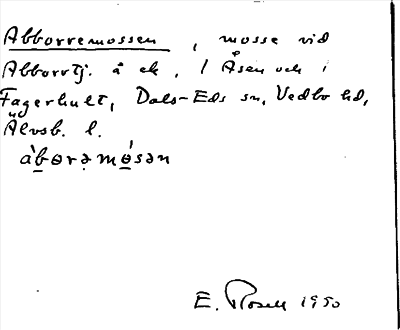 Abborremossen, mosse vid
Abborrtj. å ek. 1 Åsen och i
Fagerhult, Dals-Eds sn, Vedbo hd,
Älvsb. l.
àbɵrəmɵ́sən
E. Rosell 1950